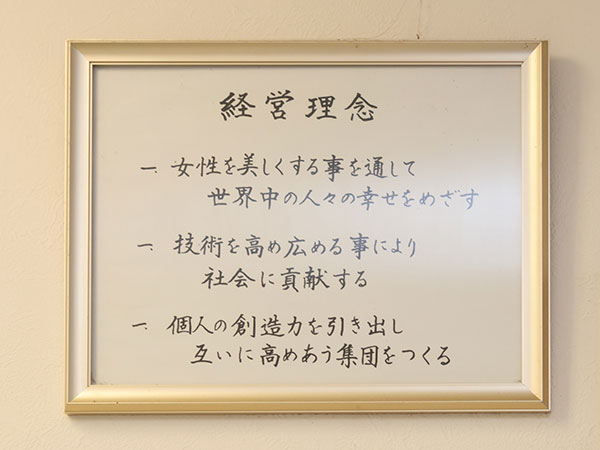 経営理念
一. 女性を美しくする事を通して
世界中の人々の幸せをめざす
一. 技術を高め広める事により
社会に貢献する
一. 個人の創造力を引き出し
互いに高めあう集団をつくる